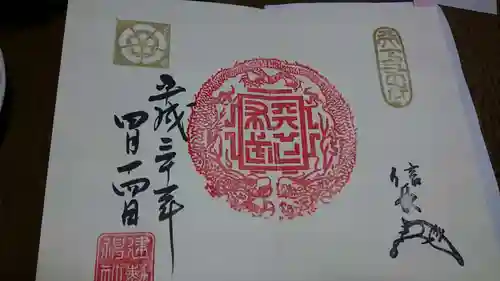 天下布武
天下布武
信長
平成三十年
四月十四日
建勲神社